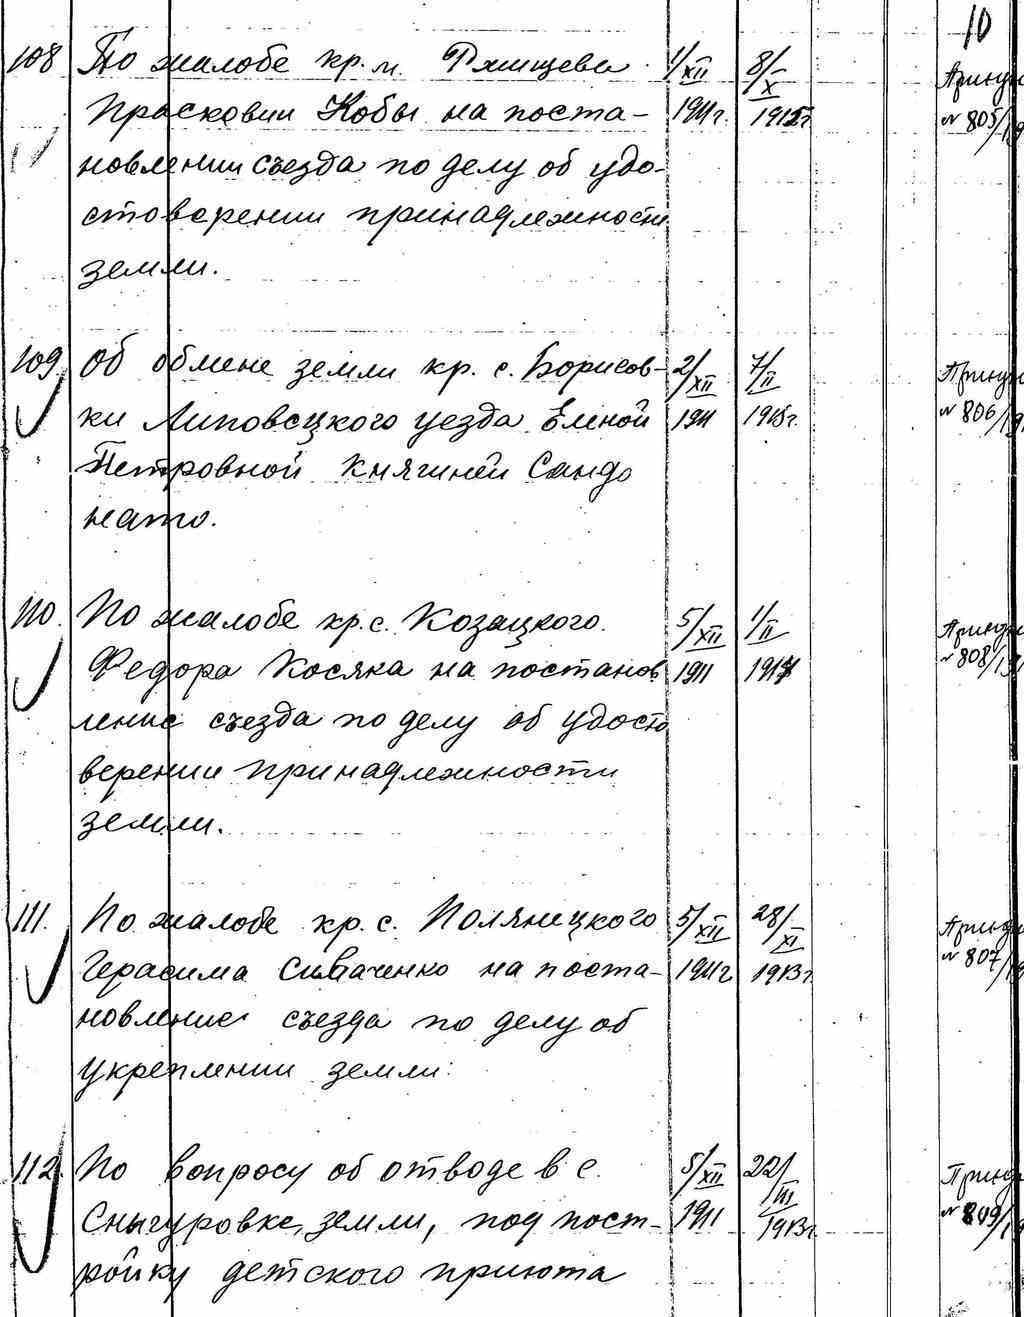 10
108 По жалобе кр. м. Ржищева 1/XII 8/X
Прасковии Кобы на поста- 1911 г. 1912 г.
новлении съезда по делу об удо- № 805/19
стоверении принадлежности
земли.
109 Об обмене земли кр. с. Борисов- 2/XII 7/II
ки Липовецкого уезда Еленой 1911 1915 г. № 806/19
Петровной княгиней Сандо
нато.
110. По жалобе кр. с. Козацкого 5/XII 1/II
Федора Косяка на постанов 1911 1917 № 808/19
ление съезда по делу об удосто
верении принадлежности
земли.
111. По жалобе кр. с. Полянецкого 5/XII 28/XI
Герасима Сиваченко на поста- 1911 г 1913 г. № 807/19
новление съезда по делу об
укреплении земли.
112. По вопросу об отводе в с. 5/XII 22/III
Сныгуровке, земли, под пост- 1911 1913 г. № 809/19
ройку детского приюта